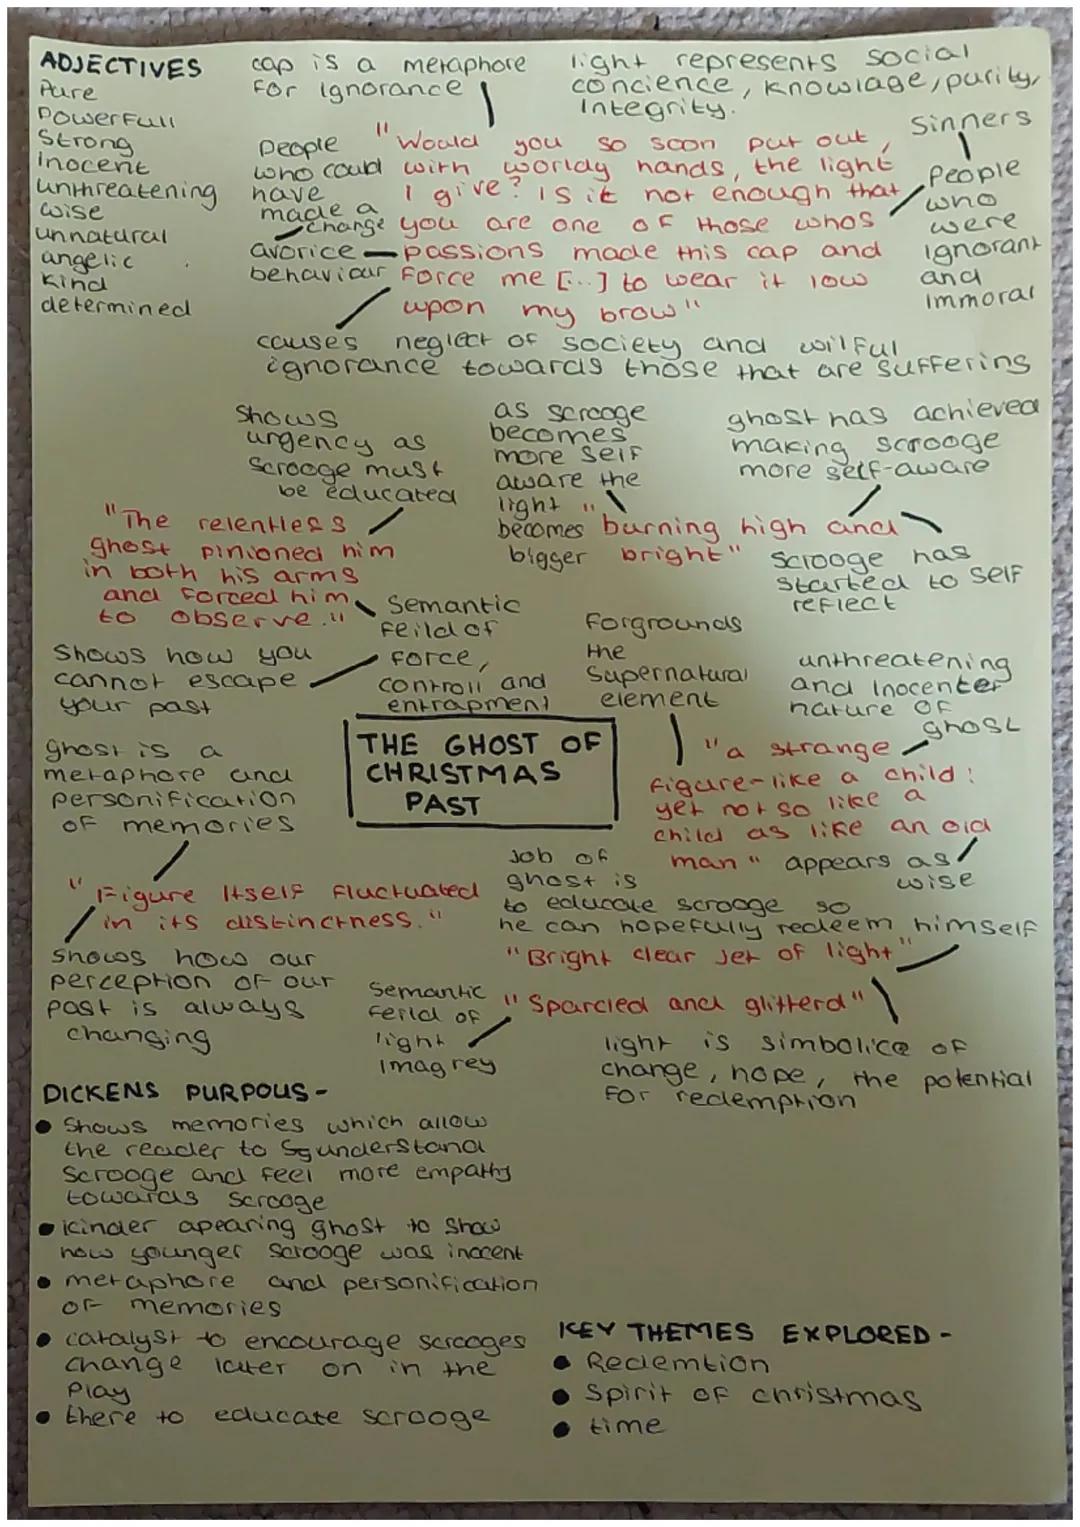 ADJECTIVES
Pure
Powerfull
Strong
inocent
unthreatening
wise
unnatural
angelic
kind
determined
cap is a metaphore
for ignorance
light represents social
concience, knowlage, purity,
Integrity.
Sinners
People
who
were
ignorant
and
immoral
People
who could
have
made a
change
avorice
behaviour
"Would you so soon put out,
with worldy hands, the light
I give? Is it not enough that
you are one of those whos
passions made this cap and
force me [...] to wear it low
upon my brow"
causes neglect of society and wilful
ignorance towards those that are suffering
Shows
urgency as
Scrooge must
be educated
as scrooge
becomes
more self
aware the
light
becomes
bigger
ghost has achieved
making scrooge
more self-aware
"The relentless
ghost pinioned him
in both his arms
and forced him
to observe."
"burning high and
bright"
Scrooge has
started to self
reflect
Semantic
feild of
force,
controll and
entrapment
Shows how you
cannot escape
your past
Forgrounds
the
Supernatural
element
unthreatening
and inocenter
nature of
ghost
THE GHOST OF
CHRISTMAS
PAST
ghost is a
metaphore and
personification
of memories
"a strange
figure-like a child:
yet not so like a
child as like an old
man"
appears as
wise
"Figure Itself fluctuated
in its distinctness."
Job of
ghost is
to educate scrooge so
he can hopefully redeem himself
"Bright clear jet of light"
Shows how our
perception of our
past is always
changing
Semantic
feild of
light
imagrey
"Sparcled and glitterd"
light is simbolice of
change, hope, the potential
for redemption
DICKENS PURPOUS-
• Shows memories which allow
the reader to understand
Scrooge and feel more empathy
towards scrooge
• kinder apearing ghost to show
how younger scrooge was inocent
• metaphore and personification
of memories
• catalyst to encourage scrooges
change later on in the
Play
• there to educate scrooge
KEY THEMES EXPLORED-
• Redemtion
• Spirit of christmas
• time